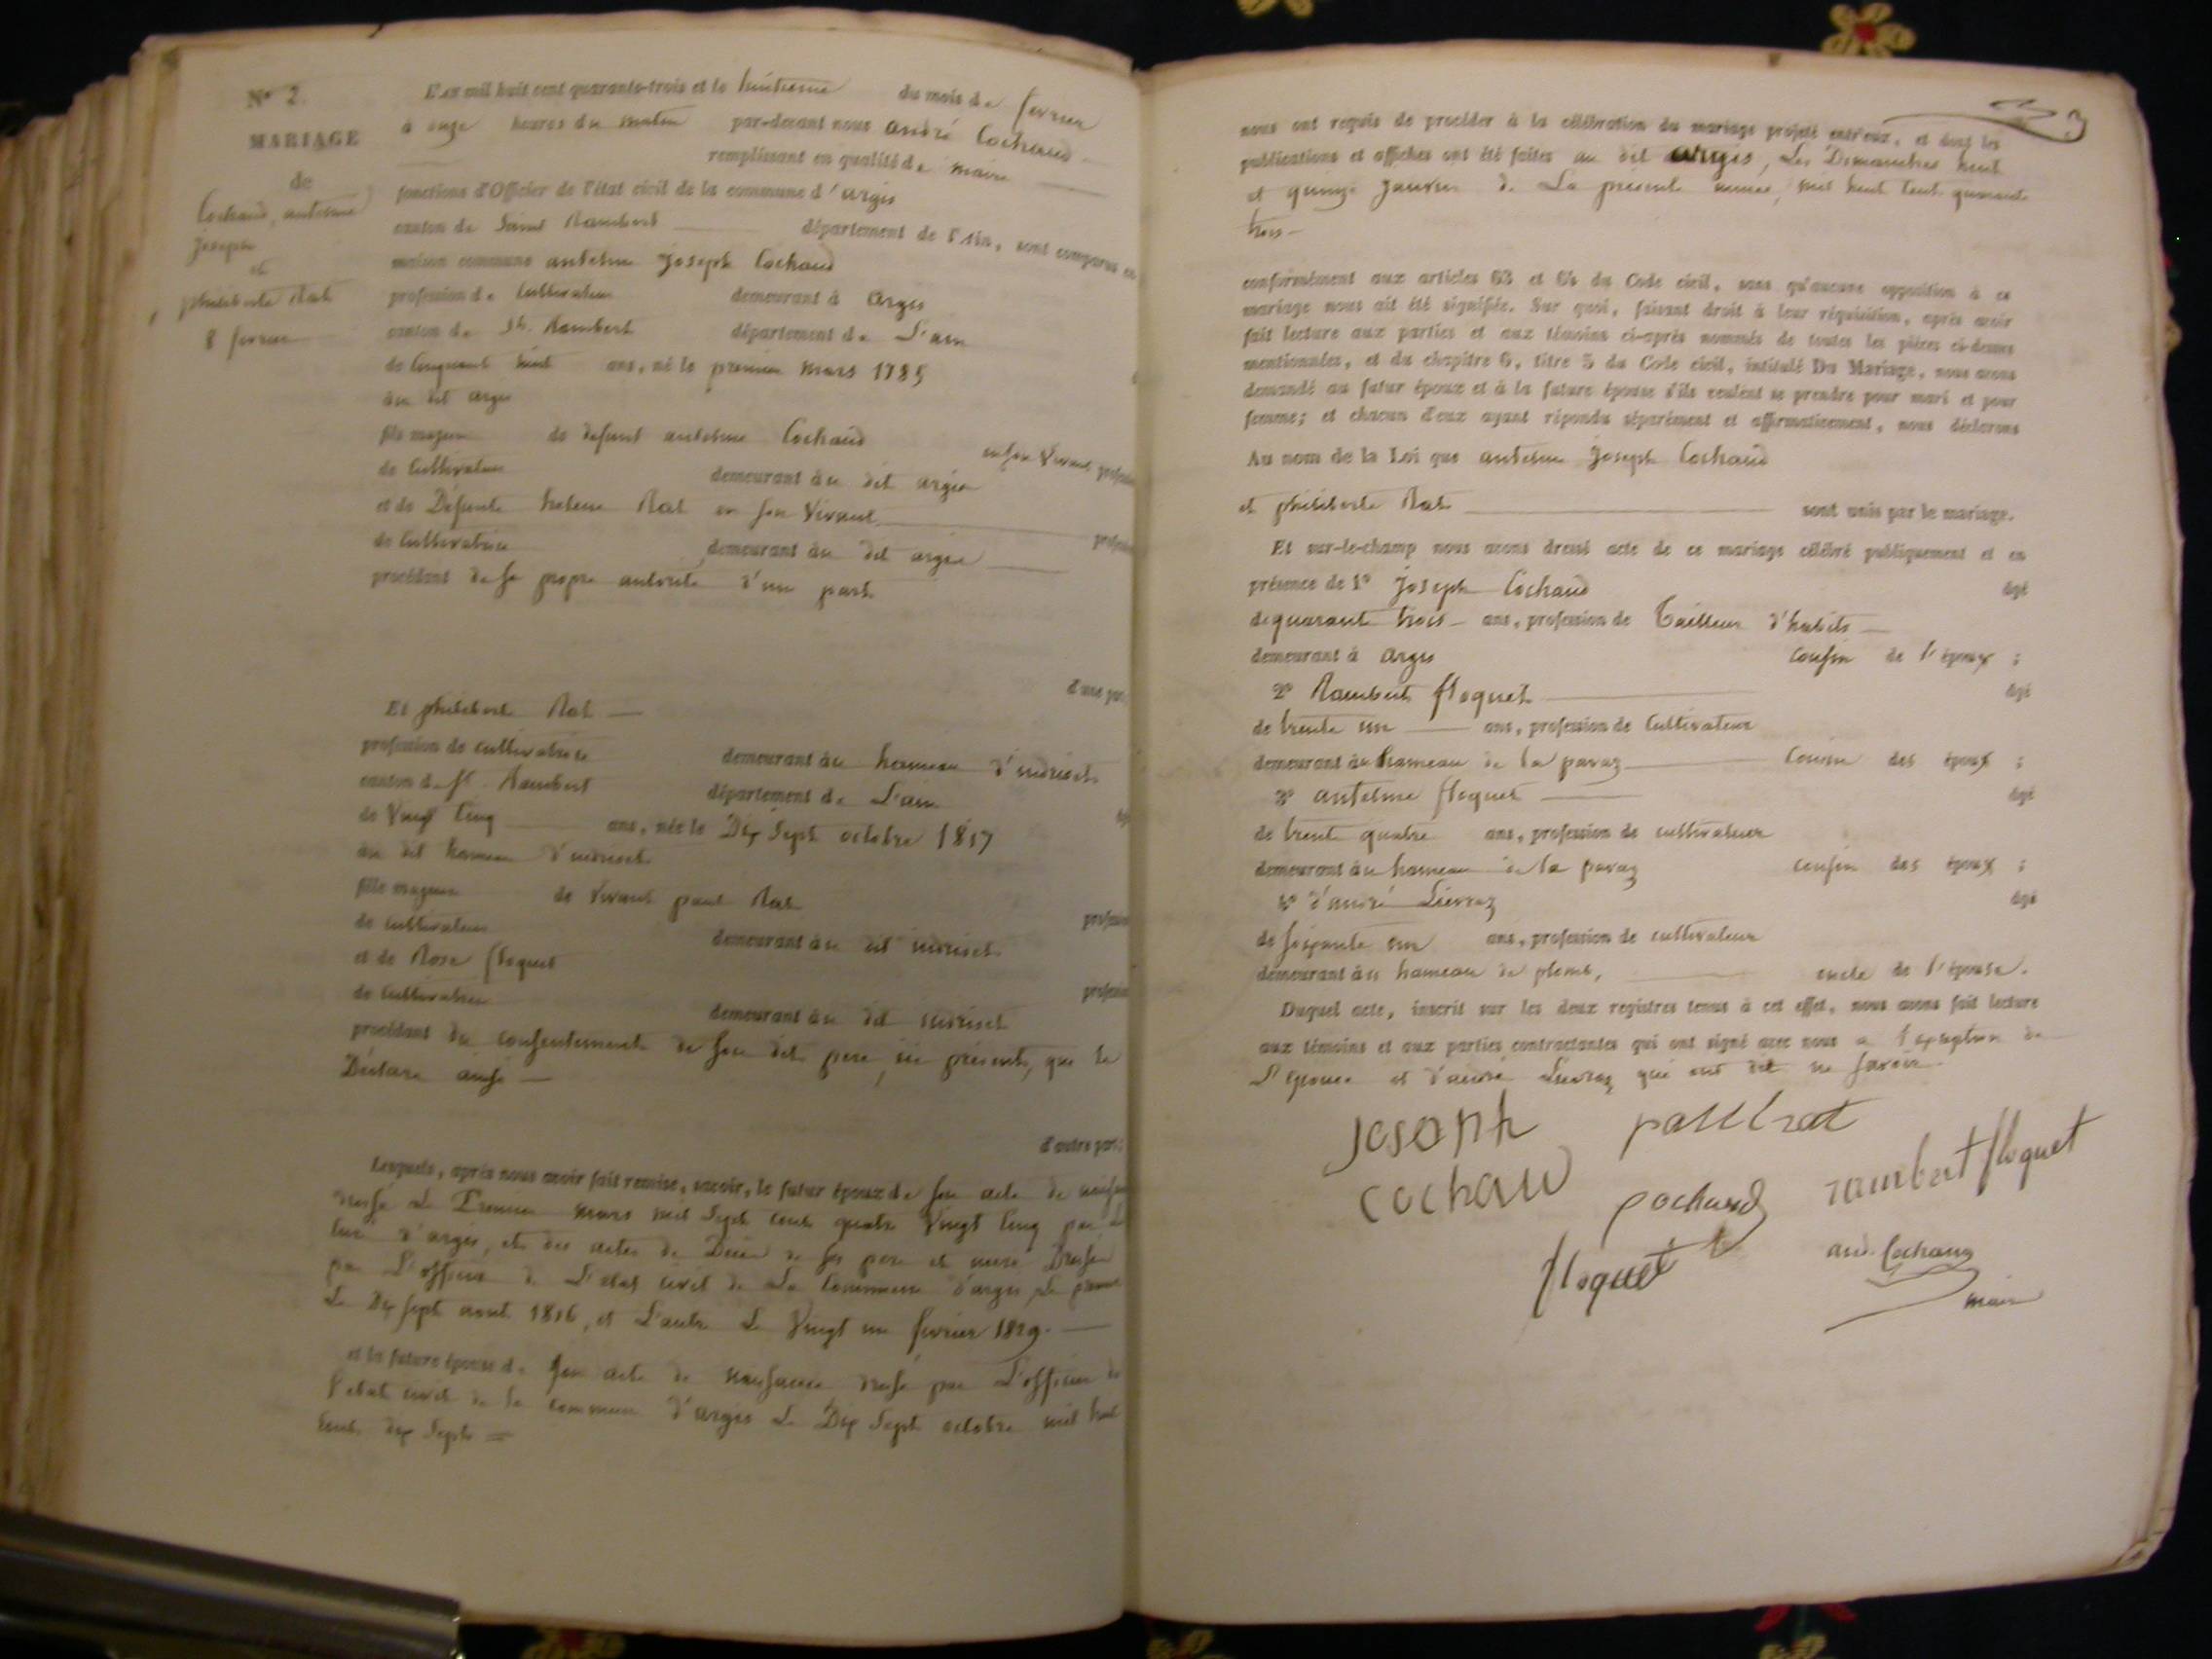 Nº 2.
MARIAGE
de
Cochaud, antelme
joseph
et
philiberte Rat
8 fevrier
L'an mil huit cent quarante-trois et le huitieme du mois de fevrier
à onze heures du matin par-devant nous andré Cochaud
remplissant en qualité de maire
fonctions d'Officier de l'état civil de la commune d'argis
canton de Saint Rambert département de l'Ain, sont comparus en
maison commune antelme joseph Cochaud
profession de Cultivateur demeurant à argis
canton de St. Rambert département de L'ain
de Cinquant huit ans, né le premier mars 1785
au dit argis
fils majeur de defunt antelme Cochaud en son vivant profession
de Cultivateur demeurant au dit argis
et de Defunte helene Rat en son vivant profession
de Cultivatrice demeurant au dit argis
procédant de sa propre autorité d'une part
d'une part
Et philiberte Rat
profession de cultivatrice demeurant au hameau d'indrieu
canton de St. Rambert département de L'ain
de Vingt Cinq ans, née le Dix Sept octobre 1817
au dit hameau
fille majeure de Vivant paul Rat profession
de cultivateur demeurant au dit
et de Rose floquet profession
de Cultivatrice demeurant au dit
procédant du consentement de son dit pere, ici présent, que le
Déclare ainsi
d'autre part;
Lesquels, après nous avoir fait remise, savoir, le futur époux de son acte de naissance
dressé Le Premier mars mil Sept cent quatre Vingt Cinq par le
curé d'argis, et des actes de Décès de ses pere et mere Dressés
par L'officier de L'etat civil de La Commune d'argis, Le premier
Le Dix sept aout 1816, et L'autre Le Vingt un fevrier 1829.
et la future épouse de Son acte de naissance dressé par L'officier de
l'etat civil de la commune d'argis Le Dix Sept octobre mil huit
Cent dix Sept =
3
nous ont requis de procéder à la célébration du mariage projeté entr'eux, et dont les
publications et affiches ont été faites au dit argis, Les Dimanches huit
et quinze janvier de La présente année, mil huit Cent quarante
trois
conformément aux articles 63 et 64 du Code civil, sans qu'aucune opposition à ce
mariage nous ait été signifiée. Sur quoi, faisant droit à leur réquisition, après avoir
fait lecture aux parties et aux témoins ci-après nommés de toutes les pièces ci-dessus
mentionnées, et du chapitre 6, titre 5 du Code civil, intitulé Du Mariage, nous avons
demandé au futur époux et à la future épouse s'ils veulent se prendre pour mari et pour
femme; et chacun d'eux ayant répondu séparément et affirmativement, nous déclarons
Au nom de la Loi que antelme Joseph Cochaud
et philiberte Rat sont unis par le mariage.
Et sur-le-champ nous avons dressé acte de ce mariage célébré publiquement et en
présence de 1º Joseph Cochaud âgé
de quarante trois ans, profession de Tailleur d'habits
demeurant à argis cousin de l'époux ;
2º Rambert floquet âgé
de trente un ans, profession de Cultivateur
demeurant au hameau de la pavaz Cousin des époux ;
3º antelme floquet âgé
de trente quatre ans, profession de cultivateur
demeurant au hameau de la pavaz cousin des époux ;
4º d'andré Lievraz âgé
de soixante un ans, profession de cultivateur
demeurant au hameau de plomt, oncle de l'épouse.
Duquel acte, inscrit sur les deux registres tenus à cet effet, nous avons fait lecture
aux témoins et aux parties contractantes qui ont signé avec nous a l'exception de
L'epouse et d'andré Lievraz qui ont dit ne savoir.
joseph paul rat
cochaud cochaud rambert floquet
floquet and. Cochaud
maire